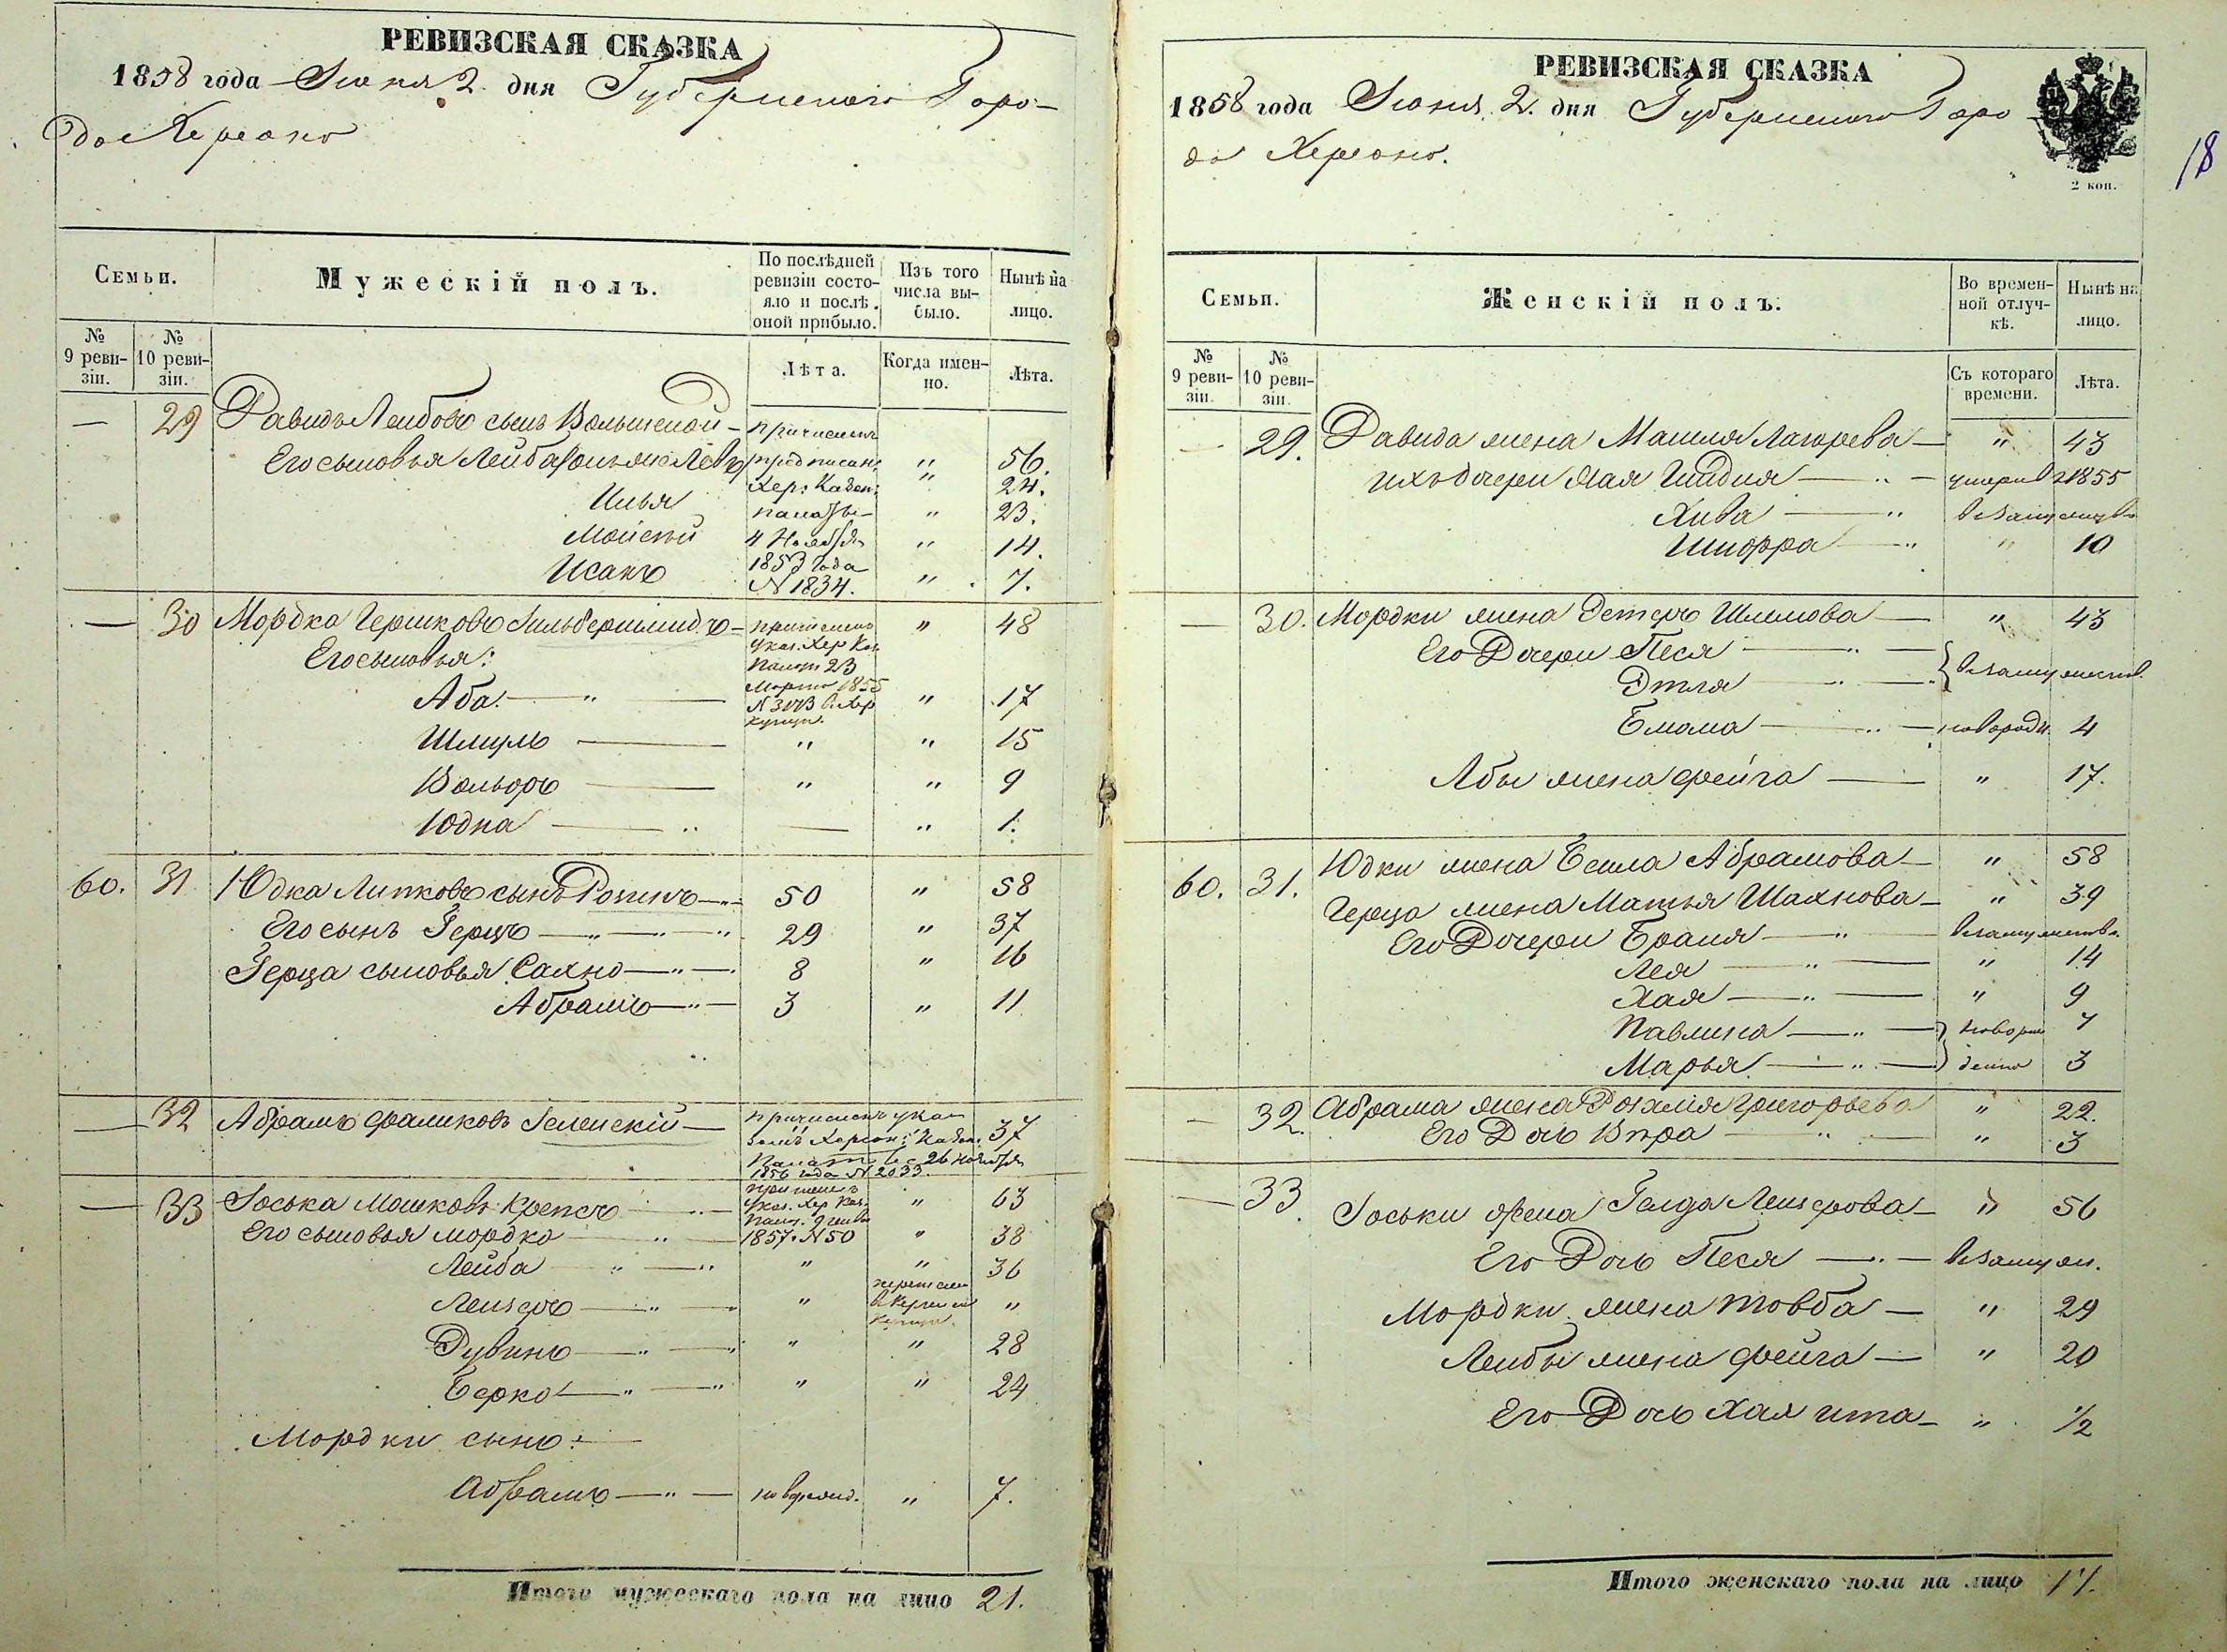 РЕВИЗСКАЯ СКАЗКА
1858 года Июня 2. дня Губернскаго Горо-
да Херсона
Семьи.
Мужескій полъ.
По послѣдней ревизіи состояло и послѣ оной прибыло.
Изъ того числа выбыло.
Нынѣ на лицо.
№ 9 ревизіи.
№ 10 ревизіи.
Лѣта.
Когда именно.
Лѣта.
— 29 Давидъ Лейбовъ сынъ Волынской — причисленъ
Его сыновья Лейба предписан: " 56.
Хер: Казен: " 24.
Илья палаты " 23.
Мойсей 4 Ноября " 14.
Исакъ 1853 года N 1834. " 7.
— 30 Мордка Гершковъ Зильбершмидъ — причисленъ " 48
Его сыновья: указ. Хер Каз. Палат 23
Аба — " — Марта 1855 " 17
Шмуль — " " 15
Вольфъ — " " 9
Юдка — " — " 1.
60. 31 Юдка Липковъ сынъ — " — 50 " 58
Его сынъ Герцъ — " — " — " 29 " 37
Герца сыновья Сахно — " — 8 " 16
Абрамъ — " — 3 " 11
— 32 Абрамъ Фаликовъ Геленскій — причисленъ ука-
зомъ Херсон: Казен: 37
Палаты 26 ноября
1856 года N 2033.
— 33 Іоська Мошковъ — " — причисленъ Указ. Хер Каз. " 63
Его сыновья Мордко — " — 1857. N 50 " 38
Лейба — " — " " " 36
Лейзеръ — " — " перечислен в купцы "
Дувинъ — " — " " " 28
Берко — " — " " " 24
Мордки сынъ: —
Абрамъ — " — новорожд. " 7.
Итого мужескаго пола на лицо 21.
РЕВИЗСКАЯ СКАЗКА
1858 года Июня 2. дня Губернскаго Горо
да Херсона.
2 коп.
18
Семьи.
Женскій полъ.
Во временной отлучкѣ.
Нынѣ на лицо.
№ 9 ревизіи.
№ 10 ревизіи.
Съ котораго времени.
Лѣта.
— 29. Давида жена Лазарева — " 43
ихъ дочери Хая — " — умерла 1855
Хива — " в замужеств
Шпорра — " " 10
— 30. Мордки жена Эстеръ Шлемова — " 43
Его Дочери Песя — " — } в замужеств.
Этля — " —
— " — новорожд. 4
Абы жена Фейга — " 17.
60. 31. Юдки жена Бейла Абрамова — " 58
Герца жена Шахнова — " 39
Его Дочери Браня — " в замужестве
Лея — " — " 14
Хая — " — " 9
Павлина — " — } новорож 7
Марья — " — } денно 3
— 32. Абрама жена Рохля Григорьева " 22.
Его Дочь — " — " 3
— 33. Іоськи жена Голда Лейзерова — " 56
Его Дочь Песя — " — в замуж.
Мордки жена Товба — " 29
Лейбы жена Фейга — " 20
Его Дочь Хая ита — " 1/2
Итого женскаго пола на лицо 17.